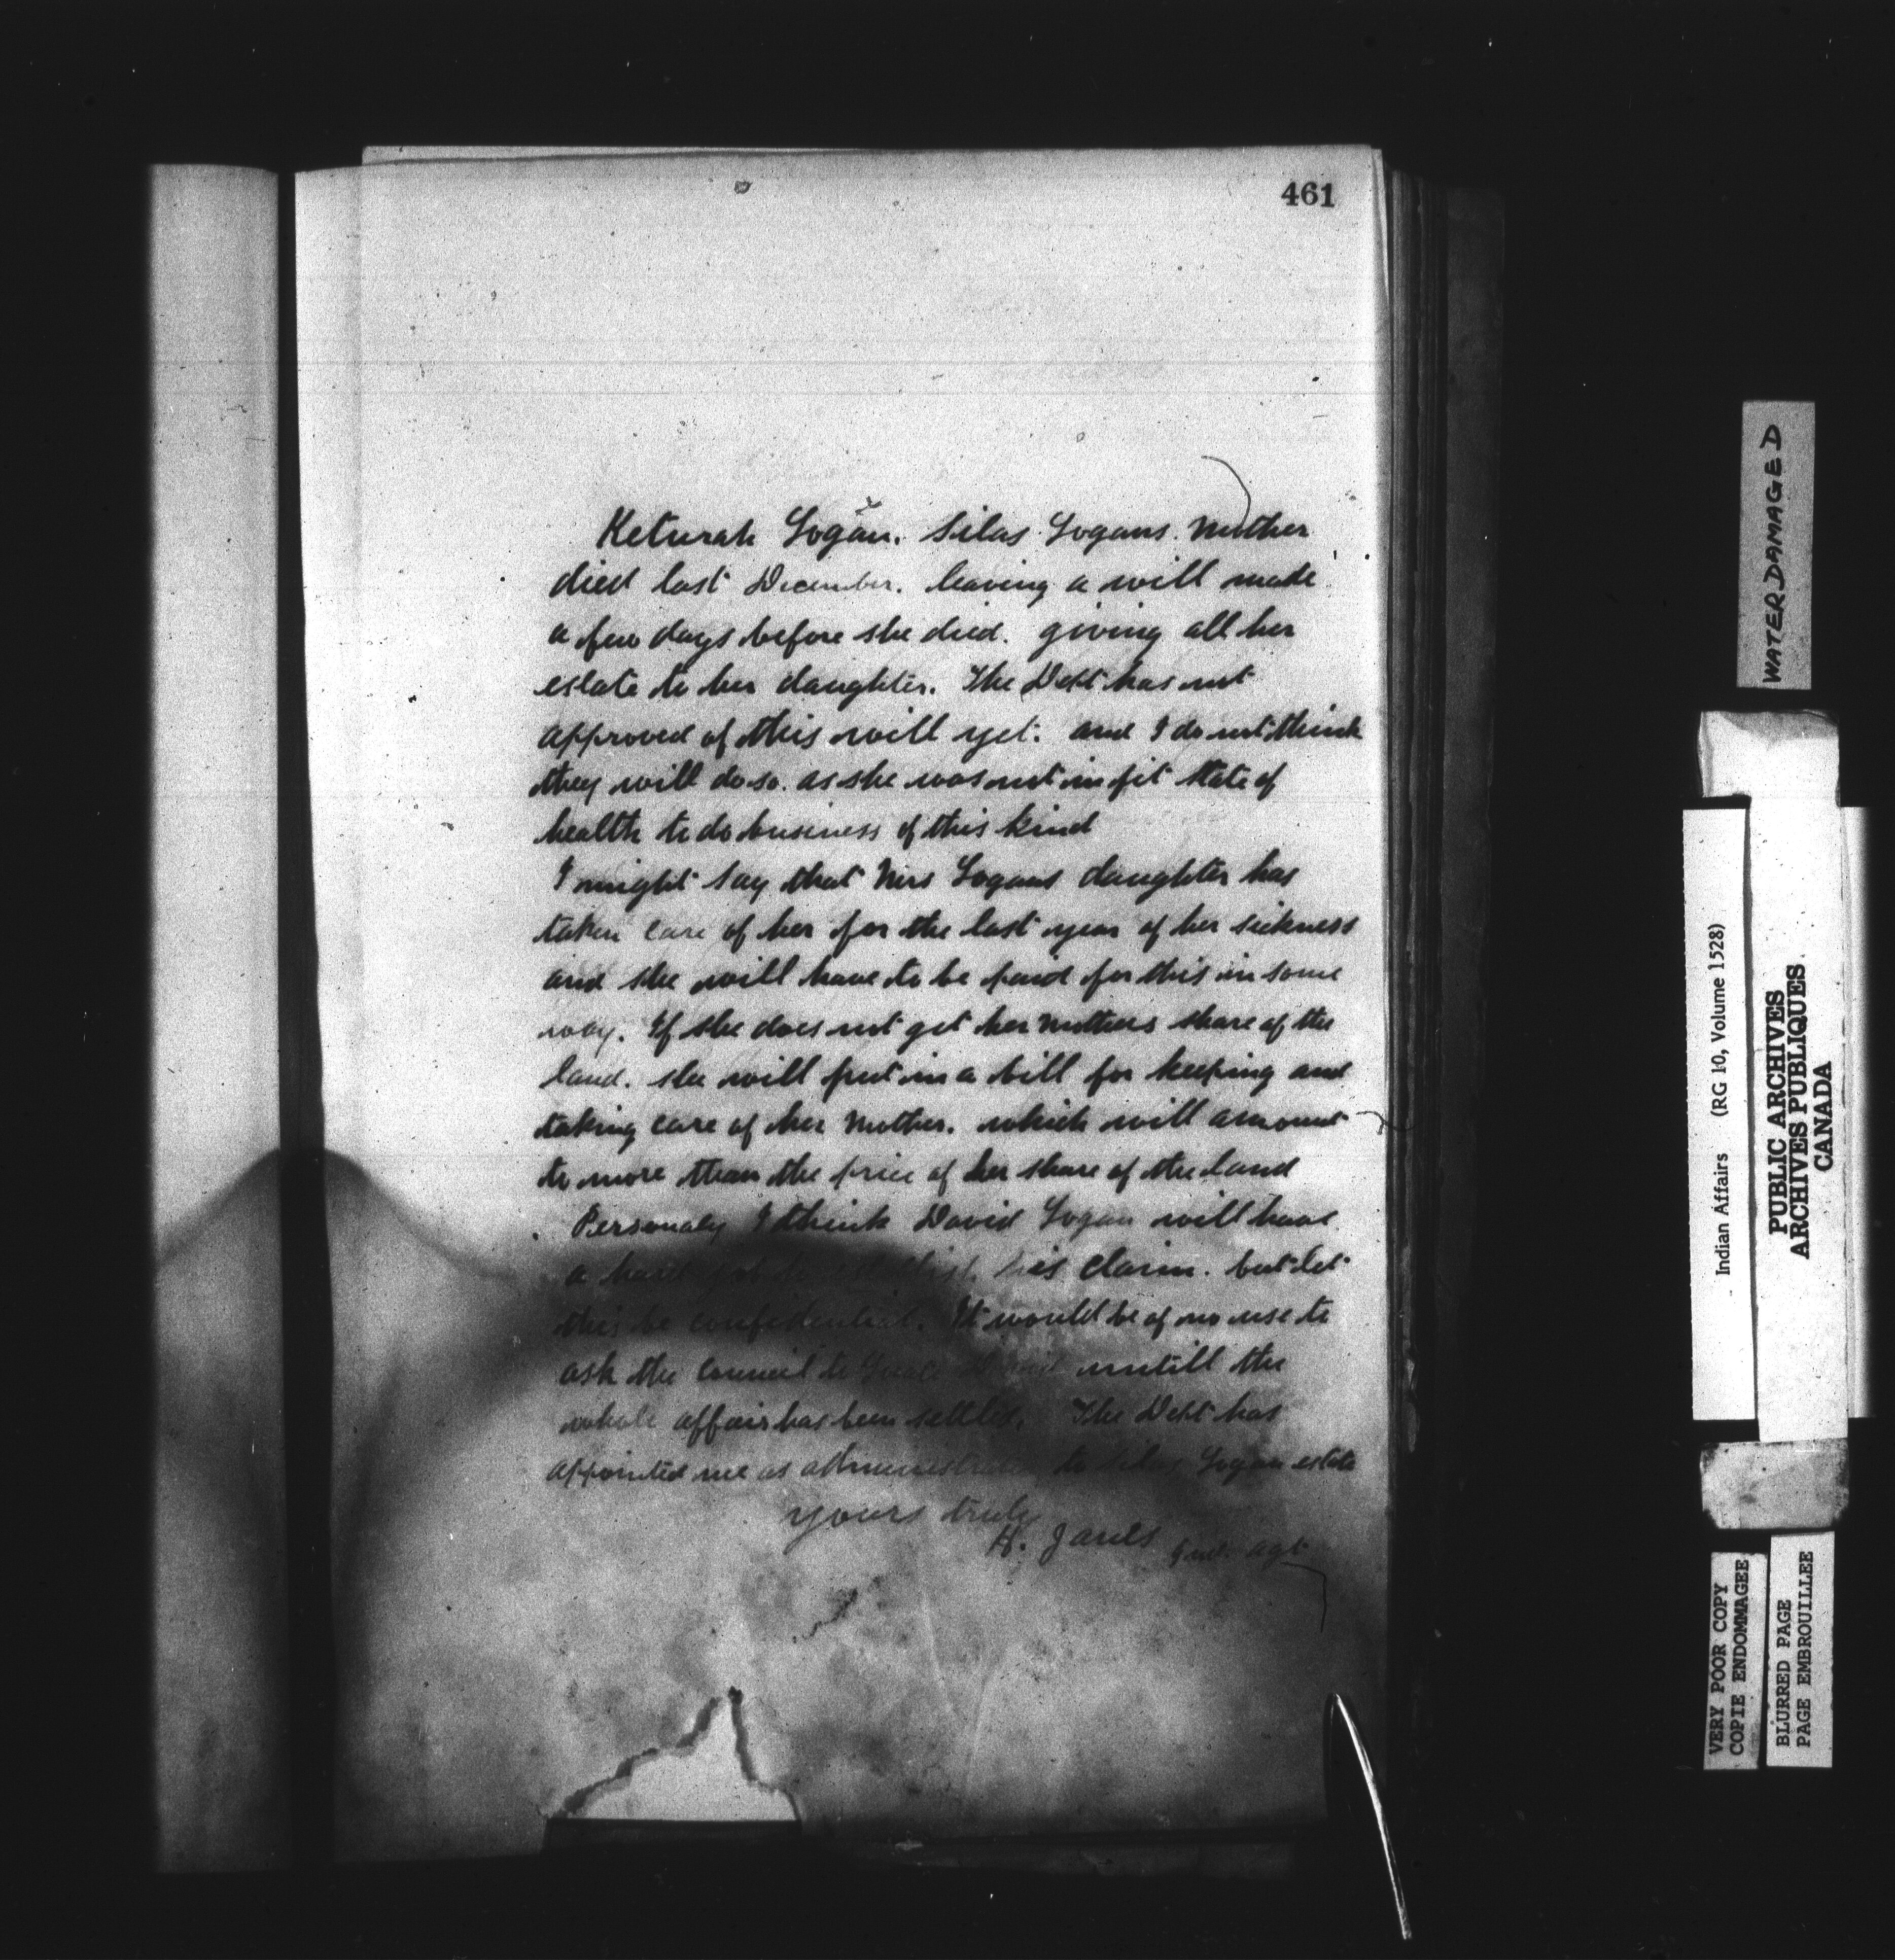 461
Keturah Logan. Silas Logans. Mother
died last December. leaving a will made
a few days before she died. giving all her
estate to her daughter. The Dept has not
approved of this will yet. and I do not think
they will do so. as she was not in fit state of
health to do business of this kind
I might say that Mrs Logans daughter has
taken care of her for the last year of her sickness
and she will have to be paid for this in some
way. If she does not get her Mothers share of the
land. she will put in a bill for keeping and
taking care of her Mother. which will amount
to more than the price of her share of the land
Personaly I think David Logan will have
a hard his claim. but let
this be confidential. It would be of no use to
ask the Council to untill the
whole affair has been settled. The Dept has
appointed me as administrator to Silas Logan estate
yours truly
Ind. agt
WATER DAMAGED
Indian Affairs (RG 10, Volume 1528)
PUBLIC ARCHIVES
ARCHIVES PUBLIQUES
CANADA
VERY POOR COPY
COPIE ENDOMMAGEE
BLURRED PAGE
PAGE EMBROUILLEE